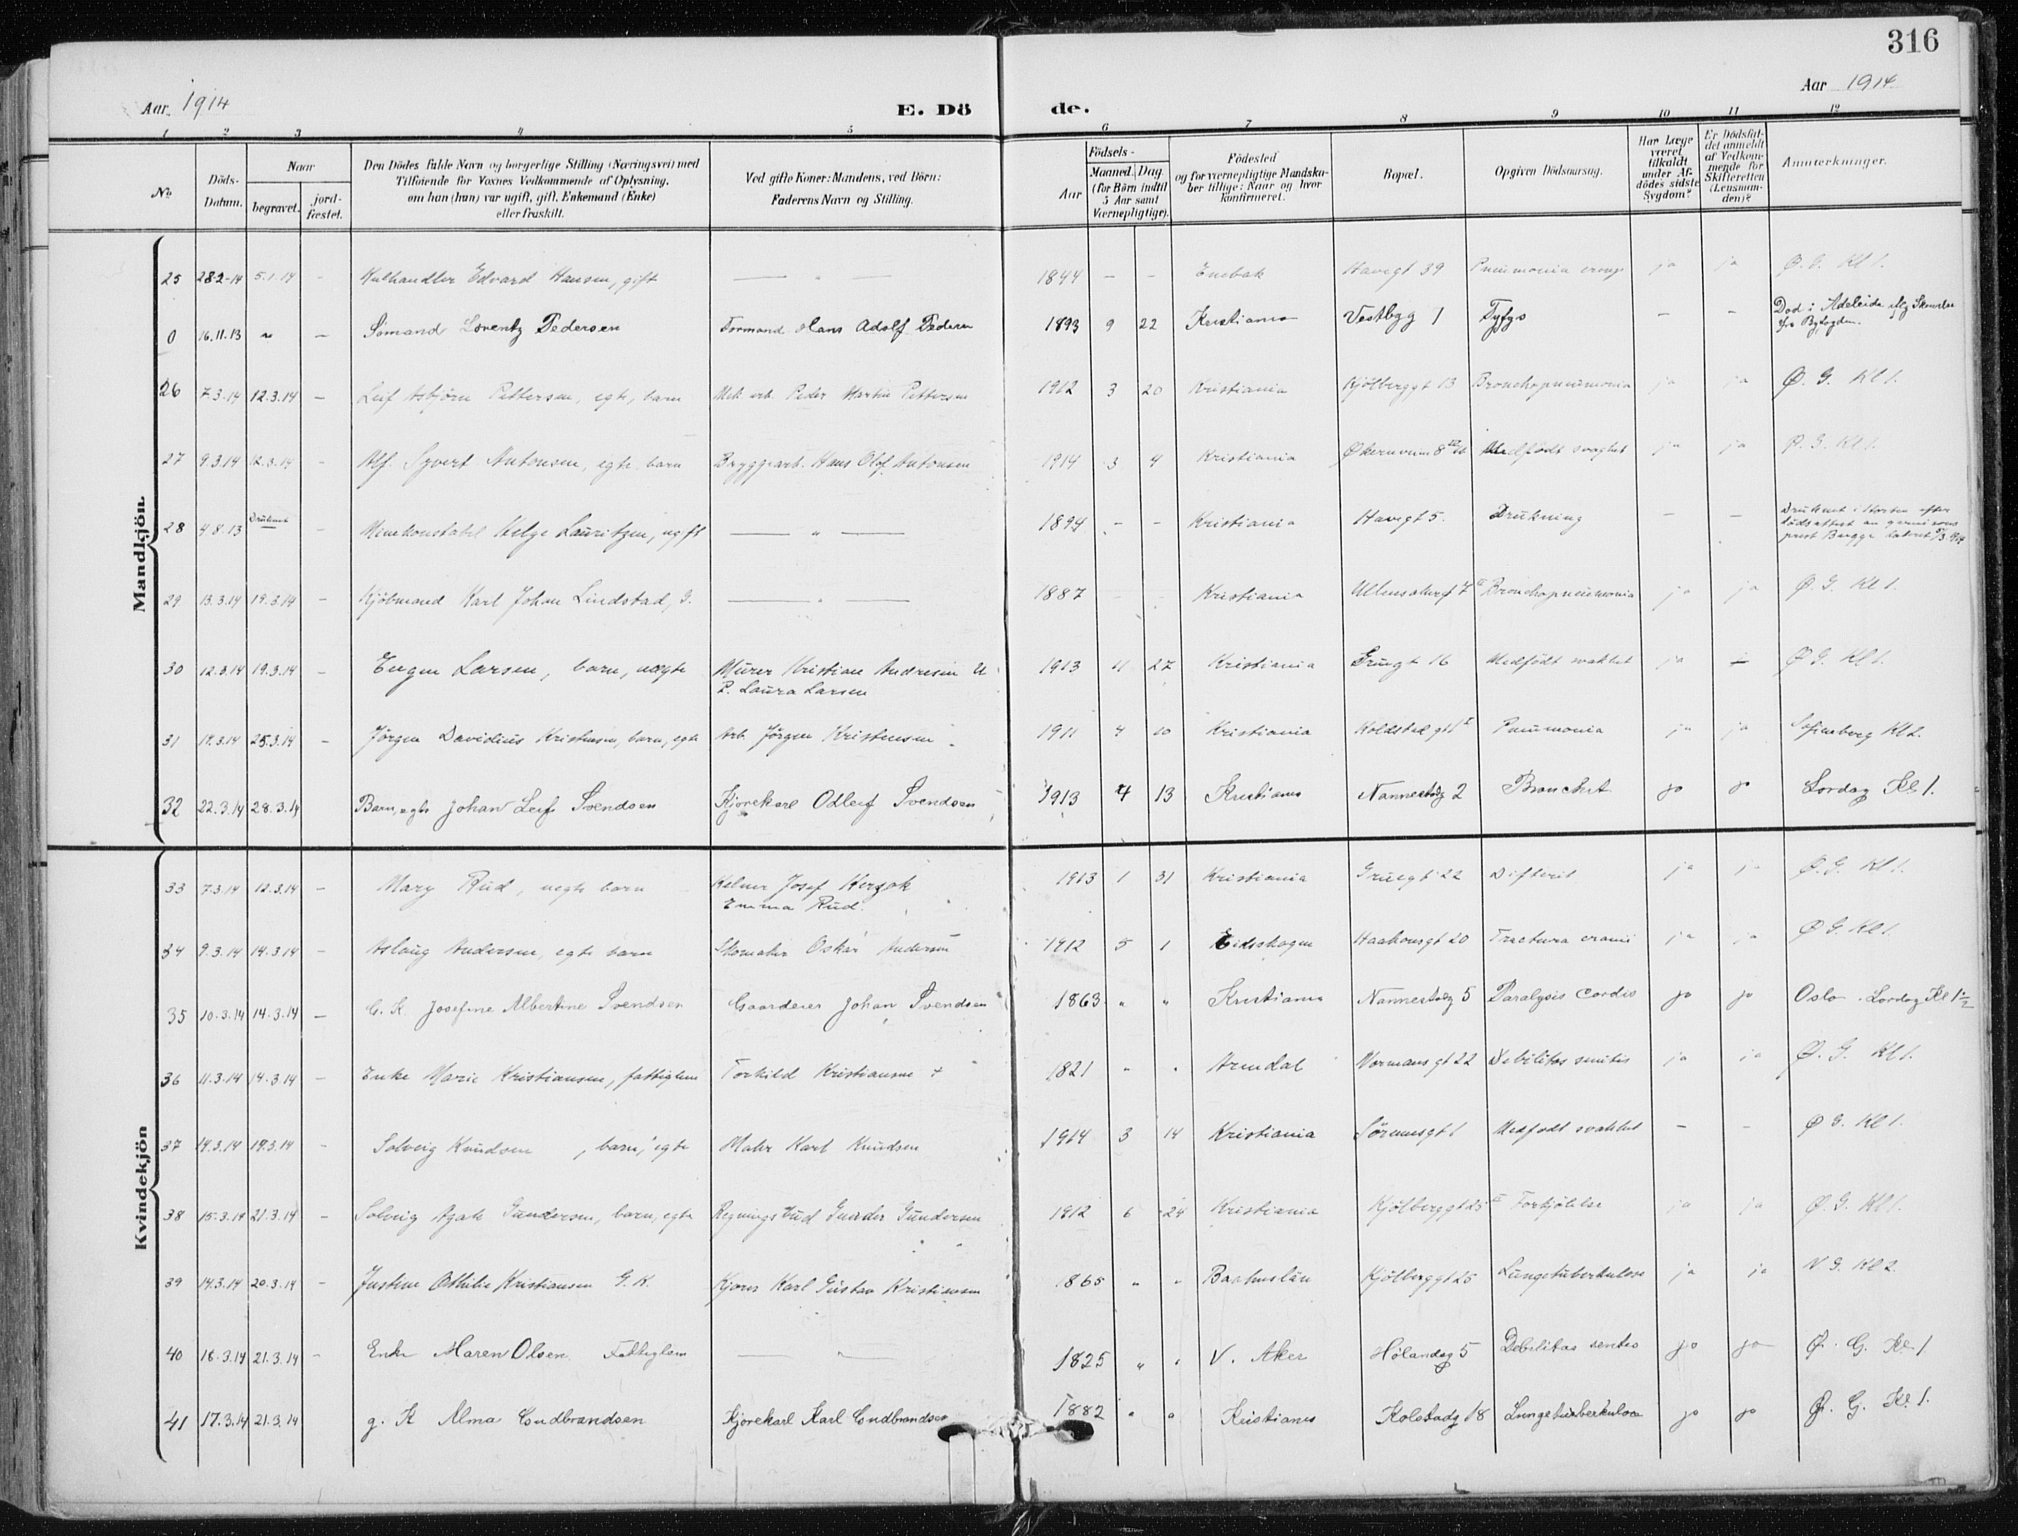 316
Aar 1914 E. Dö de. Aar 1914
1 2 3 4 5 6 7 8 9 10 11 12
No
Döds-Datum.
Naar
begravet.
jord-fæstet.
Den Dödes fulde Navn og borgerlige Stilling (Næringsvei) med
Tilföiende for Voxnes Vedkommende af Oplysning,
om han (hun) var ugift, gift, Enkemand (Enke)
eller fraskilt.
Ved gifte Koner: Mandens, ved Börn:
Faderens Navn og Stilling.
Födsels-
Aar
Maaned. Dag
(for Börn indtil
5 Aar samt
Værnepligtige).
Födested
og for værnepligtige Mandska-
ber tillige: Naar og hvor
konfirmeret.
Bopæl.
Opgiven Dödsaarsag.
Har Læge
været
tilkaldt
under Af-
dödes sidste
Sygdom?
Er Dödsfal-
det anmeldt
af Vedkom-
mende for
Skifteretten
(Lensman-
den)?
Anmærkninger.
Mandkjön.
25 28.2-14 5.1.14 - Kulhandler Edvard Hansen, gift — " — 1844 - - Enebak Havegt 39 Pneumonia croup ja ja Ø.G. Kl 1.
0 16.11.13 " - Sömand Lorentz Pedersen Formand Hans Adolf Pedersen 1893 9 22 Kristiania Vestbyg 1 Tyfus - - Död i Adelaide
fra Byfogden.
26 7.3.14 12.3.14 - Leif Asbjörn Pettersen, egte, barn Mek. arb. Peder Martin Pettersen 1912 3 20 Kristiania Kjölberggt 13 Bronchopneumonia ja ja Ø. G. Kl 1.
27 9.3.14 12.3.14 - Alf Syvert Antonsen, egte barn Bryggearb. Hans Olof Antonsen 1914 3 4 Kristiania Økernveien 8 Medfödt svaghet ja ja Ø. G. Kl 1.
28 4.8.13 Druknet - Minekonstabel Helge Lauritzen, ugift — " — 1894 - - Kristiania Havegt 5. Drukning - - Druknet i Horten efter
dödsattest av garnisons
prest Bugge
29 13.3.14 19.3.14 - Kjöbmand Karl Johan Lindstad, G. — " — 1887 - - Kristiania Ullensakergt 7 Bronchopneumonia ja ja Ø. G. Kl 1.
30 12.3.14 19.3.14 - Eugen Larsen, barn, uegte Murer Kristian Andresen U
P. Laura Larsen 1913 11 27 Kristiania Gruegt 16 Medfödt svakhet ja - Ø G. Kl 1.
31 18.3.14 25.3.14 - Jörgen Davidius Kristensen, barn, egte Arb. Jörgen Kristensen 1911 4 10 Kristiania Koldstad gt 1 Pneumonia ja ja Sofienberg Kl 2.
32 22.3.14 28.3.14 Barn, egte Johan Leif Svendsen Kjörekarl Odleif Svendsen 1913 4 13 Kristiania Nannestadg 2 Bronchit ja ja Lördag Kl 1.
Kvindekjön
33 7.3.14 12.3.14 - Mary Rud, uegte barn Kelner Josef Herzok
Emma Rud. 1913 1 31 Kristiania Gruegt 22 Difterit ja ja Ø. G. Kl 1.
34 9.3.14 14.3.14 - Aslaug Andersen, egte barn Skomaker Oskar Andersen 1912 5 1 Eidsskogen Haakonsgt 20 Fractura cranii ja ja Ø G. Kl 1.
35 10.3.14 14.3.14 - G. K. Josefine Albertine Svendsen Gaardeier Johan Svendsen 1863 " " Kristiania Nannestadg 5 Paralysis cordis ja ja Oslo. Lördag Kl 1 1/2
36 11.3.14 14.3.14 - Enke Marie Kristiansen, fattiglem Torkild Kristiansen + 1821 " " Arendal Normansgt 22 Debilitas senilis ja ja Ø. G. Kl 1.
37 14.3.14 19.3.14 - Solveig Knudsen, barn, egte Maler Karl Knudsen 1914 3 14 Kristiania Sörensgt 1 Medfödt svakhet - - Ø G. Kl 1.
38 15.3.14 21.3.14 - Solveig Agate Gundersen, barn, egte Regningsbud Gunder Gundersen 1912 6 24 Kristiania Kjölberggt 25 Forkjölelse ja ja Ø. G. Kl 1.
39 14.3.14 20.3.14 - Justine Othilie Kristiansen G. K. Kjörer Karl Gustav Kristiansen 1865 " " Baahuslän Kjölberggt 25 Lungetuberkulose ja ja N G. Kl 2.
40 18.3.14 21.3.14 - Enke Maren Olsen Fattiglem — " — 1825 " " V. Aker Hölandsg 5 Debilitas senilis ja ja Ø. G. Kl 1
41 17.3.14 21.3.14 g. K Alma Gudbrandsen Kjörekarl Karl Gudbrandsen 1882 " " Kristiania Kolstadg 18 Lungetuberkulose ja ja Ø. G. Kl 1.